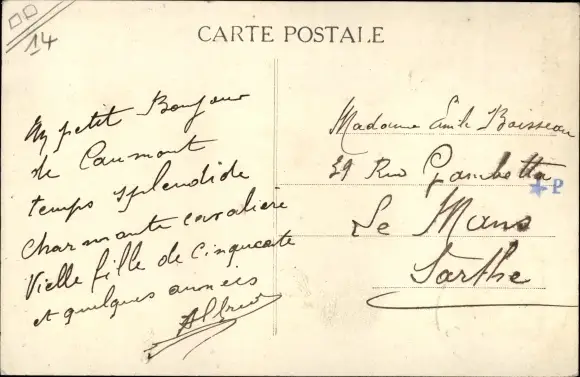 14
CARTE POSTALE
Un petit Bonjour
de Caumont
temps splendide
Charmante cavaliere
Vielle fille de cinquante
et quelques années
Madame Emile Boisseau
29 Rue Gambetta
P
Le Mans
Sarthe